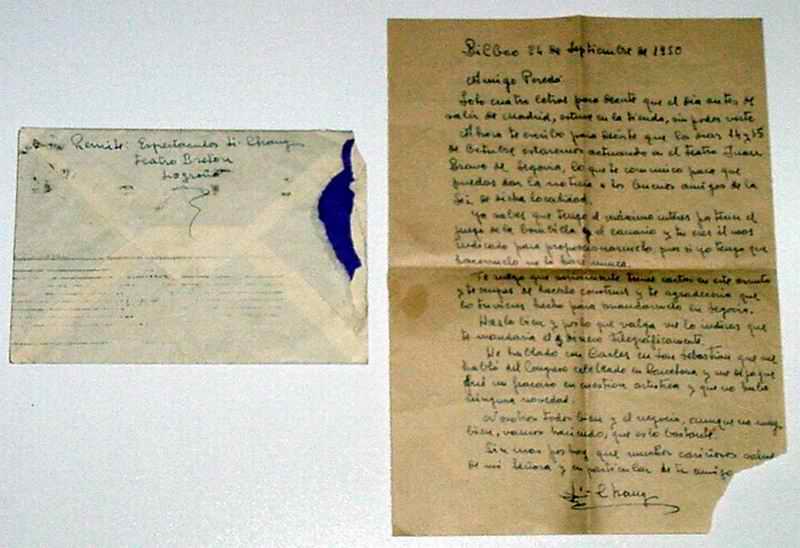 Remite: Espectaculos Li-Chang
Teatro Breton
Logroño
Bilbao 24 de Septiembre de 1950
Amigo Peredo
Solo cuatro letras para decirte que el dia antes de
salir de Madrid, estuve en la tienda, sin poder verte
Ahora te escribo para decirte que los dias 14 y 15
de Octubre estaremos actuando en el Teatro Juan
Bravo de Segovia, lo que te comunico para que
puedas dar la noticia a los buenos amigos de la
de dicha localidad.
Ya sabes que tengo el máximo interes por tener el
juego de la bombilla y el canario y tu eres el mas
indicado para proporcionarmelo, pues si yo tengo que
hacermelo no lo haré nunca.
Te ruego que tomes cartas en este asunto
y te ocupes de hacerlo construir y te agradeceria que
lo tuvieras hecho para mandarmelo en Segovia.
Hazlo bien y por lo que valga me lo indicas que
te mandaria el dinero telegráficamente.
He hablado con Carles en San Sebastian que me
habló del Congreso celebrado en Barcelona y me dijo que
fué un fracaso en cuestion artistica y que no hubo
ninguna novedad.
Nosotros todos bien y el negocio, aunque no muy
bien, vamos haciendo, que es lo bastante.
Sin mas por hoy que muchos cariñosos
de mi Señora y en particular de tu amigo
Li-Chang